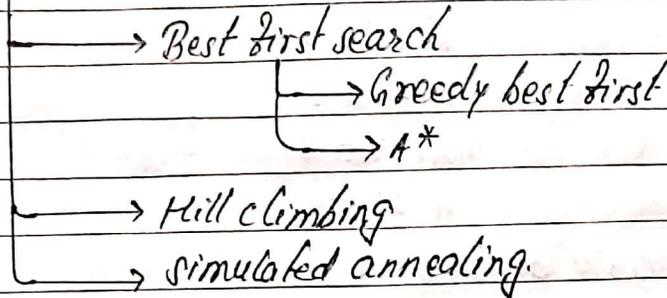 Best first search
Greedy best first
A*
Hill climbing
simulated annealing.